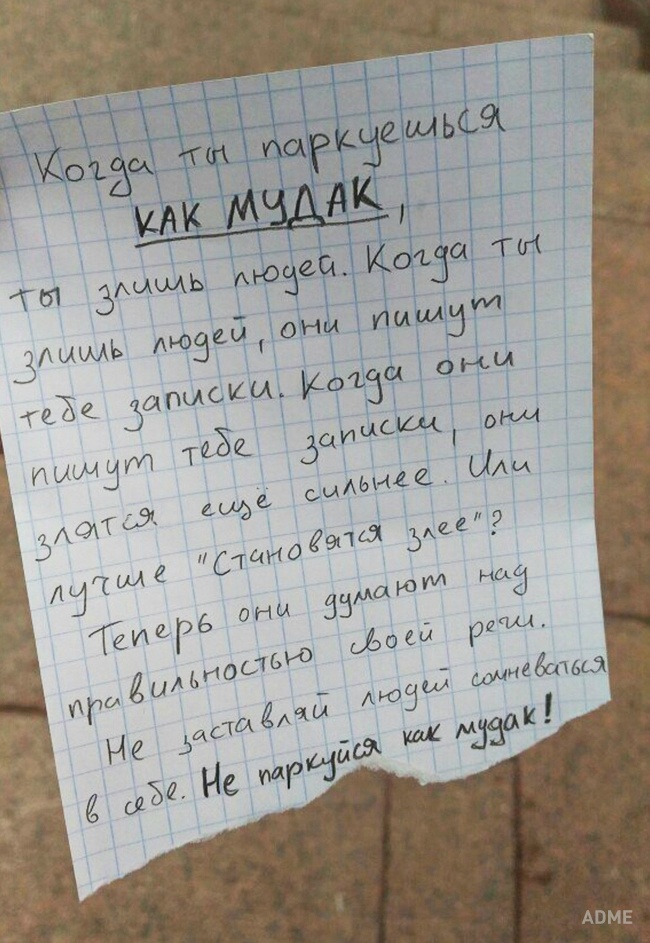 Когда ты паркуешься
КАК МУДАК,
ты злишь людей. Когда ты
злишь людей, они пишут
тебе записки. Когда они
пишут тебе записки, они
злятся ещё сильнее. Или
лучше "Становятся злее"?
Теперь они думают над
правильностью своей речи.
Не заставляй людей сомневаться
в себе. Не паркуйся как мудак!
ADME